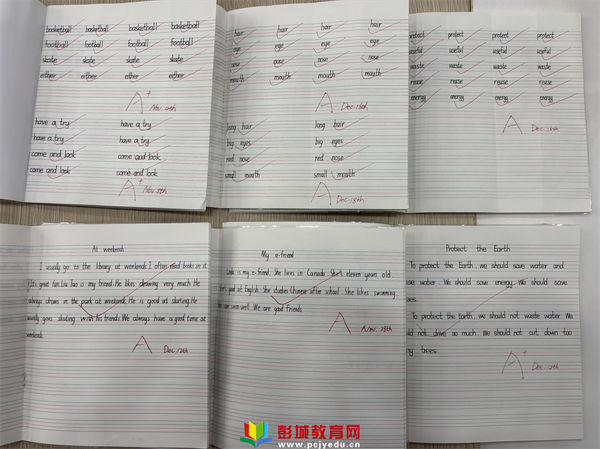 basketball basketball basketball basketball
football football football football
skate skate skate skate
either either either either
A+ Nov.
have a try have a try
have a try have a try
come and look come and look
come and look come and look
A+ Nov.
hair hair hair hair
eye eye eye eye
nose nose nose nose
mouth mouth mouth mouth
A Dec.
long hair long hair
big eyes big eyes
red nose red nose
small mouth small mouth
A Dec. 13th
protect protect protect protect
useful useful useful useful
waste waste waste waste
reuse reuse reuse reuse
energy energy energy energy
A Dec.
At weekends
I usually go to the library at weekends. I often read books in it.
It's great fun. Liu Tao is my friend. He likes drawing very much. He
always draws in the park at weekends. He is good at skating. He
usually goes skating with his friends. We always have a good time at
weekends.
A Dec. 12th
My e-friend
is my e-friend. She lives in Canada. She's eleven years old.
She's good at English. She studies Chinese after school. She likes swimming.
swim well. We are good friends.
A Nov. 28th
Protect the Earth
To protect the Earth, we should save water and
water. We should save energy. We should
To protect the Earth, we should not waste water. We
not drive so much. We should not cut down too
trees.
A+ Dec. 12th
彭城教育网
www.pcjyedu.cn